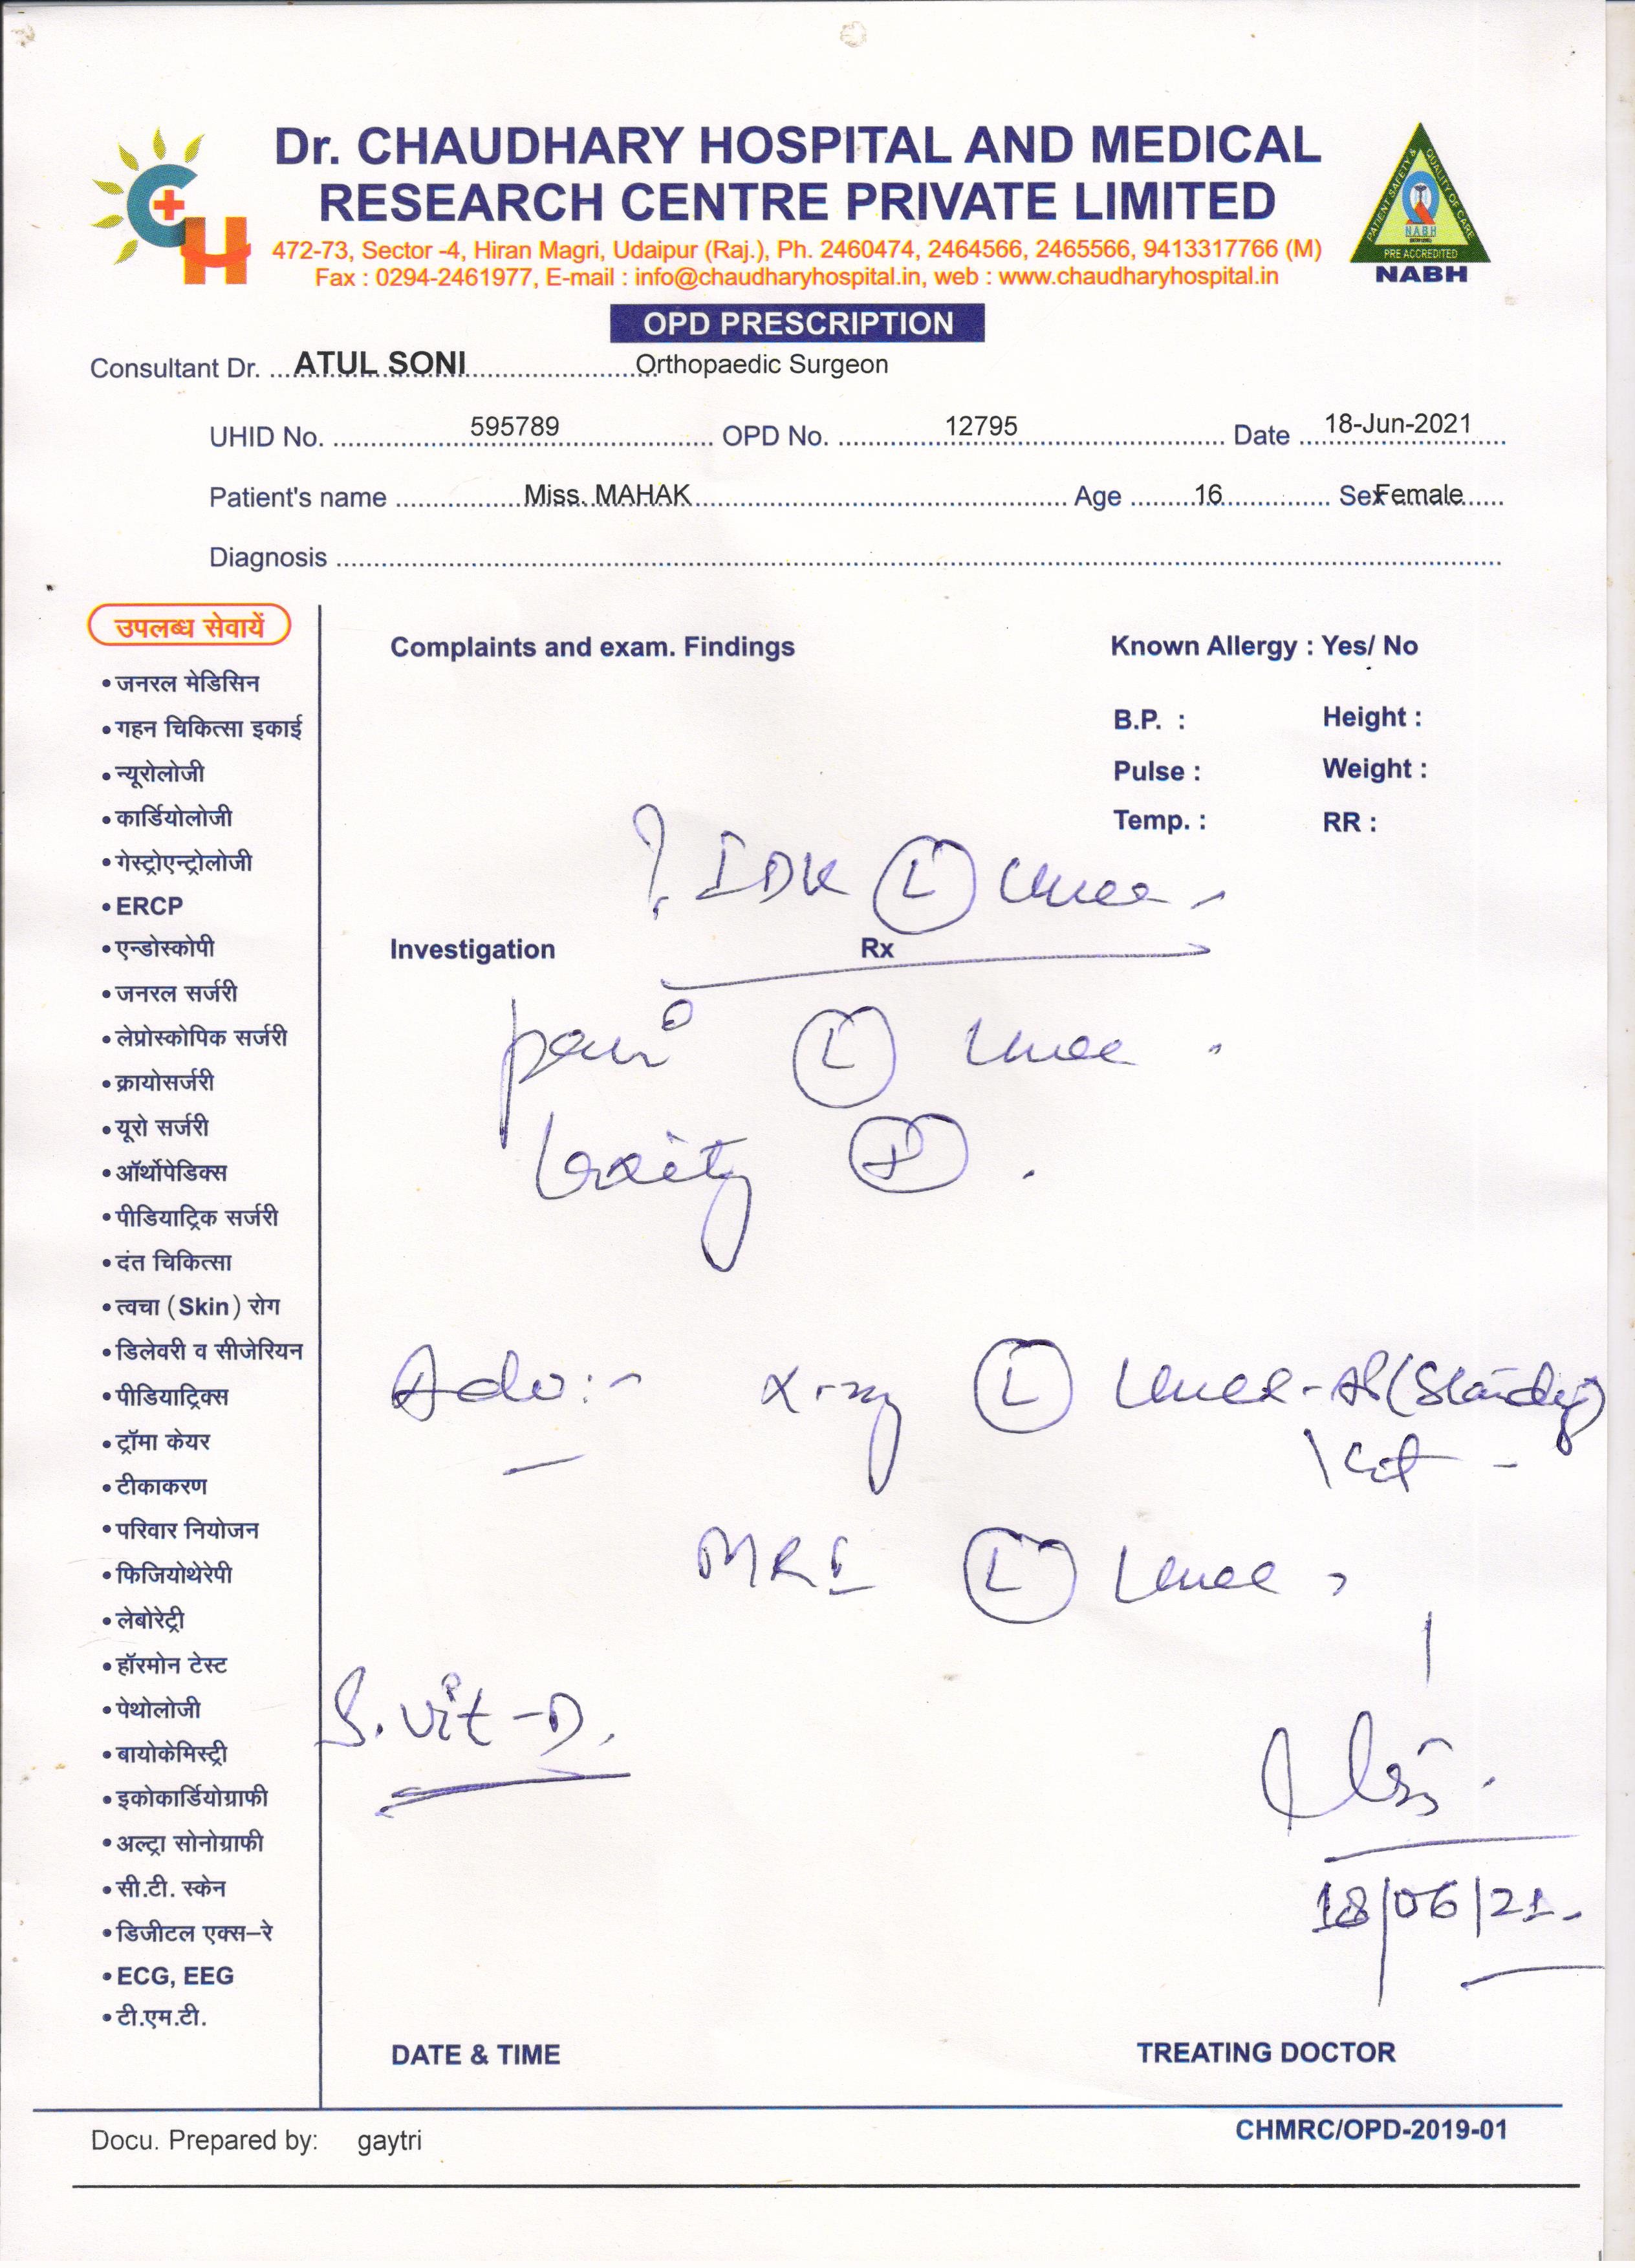 Dr. CHAUDHARY HOSPITAL AND MEDICAL
RESEARCH CENTRE PRIVATE LIMITED
472-73, Sector -4, Hiran Magri, Udaipur (Raj.), Ph. 2460474, 2464566, 2465566, 9413317766 (M)
Fax : 0294-2461977, E-mail : info@chaudharyhospital.in, web : www.chaudharyhospital.in
PATIENT SAFETY & QUALITY OF CARE
NABH
PRE ACCREDITED
NABH
OPD PRESCRIPTION
Consultant Dr. ATUL SONI Orthopaedic Surgeon
UHID No. 595789 OPD No. 12795 Date 18-Jun-2021
Patient's name Miss. MAHAK Age 16 Sex Female
Diagnosis
उपलब्ध सेवायें
• जनरल मेडिसिन
• गहन चिकित्सा इकाई
• न्यूरोलोजी
• कार्डियोलोजी
• गेस्ट्रोएन्ट्रोलोजी
• ERCP
• एन्डोस्कोपी
• जनरल सर्जरी
• लेप्रोस्कोपिक सर्जरी
• क्रायोसर्जरी
• यूरो सर्जरी
• ऑर्थोपेडिक्स
• पीडियाट्रिक सर्जरी
• दंत चिकित्सा
• त्वचा (Skin) रोग
• डिलेवरी व सीजेरियन
• पीडियाट्रिक्स
• ट्रॉमा केयर
• टीकाकरण
• परिवार नियोजन
• फिजियोथेरेपी
• लेबोरेट्री
• हॉरमोन टेस्ट
• पेथोलोजी
• बायोकेमिस्ट्री
• इकोकार्डियोग्राफी
• अल्ट्रा सोनोग्राफी
• सी.टी. स्केन
• डिजीटल एक्स-रे
• ECG, EEG
• टी.एम.टी.
Complaints and exam. Findings
Known Allergy : Yes/ No
B.P. : Height :
Pulse : Weight :
Temp. : RR :
? IDK (L) knee
Investigation Rx
pain (L) knee
laxity (+)
Adv:- X-ray (L) knee - AP (Standing)
Lat
MRI (L) knee
S. Vit-D.
18/06/21
DATE & TIME
TREATING DOCTOR
CHMRC/OPD-2019-01
Docu. Prepared by: gaytri